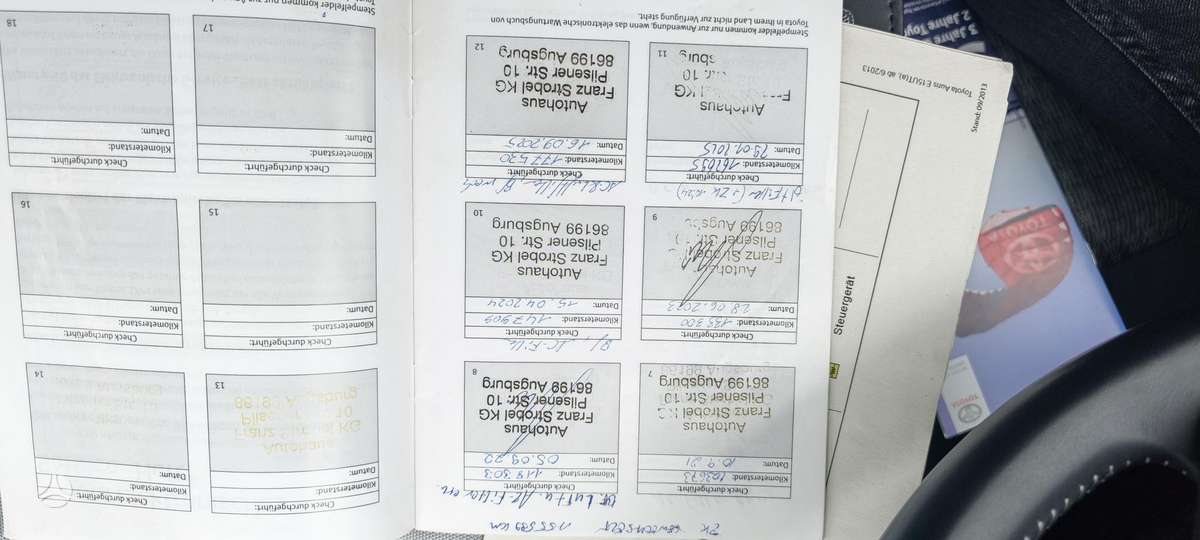 155 599 km
Check durchgeführt:
Kilometerstand: 103673
Datum: 10.9.21
Autohaus
Franz Strobel KG
Pilsener Str. 10
86199 Augsburg
7
Check durchgeführt:
Kilometerstand: 118303
Datum: 05.09.22
Autohaus
Franz Strobel KG
Pilsener Str. 10
86199 Augsburg
8
Check durchgeführt:
Kilometerstand: 135300
Datum: 28.06.2023
Autohaus
Franz Strobel KG
Pilsener Str. 10
86199 Augsburg
9
Check durchgeführt:
Kilometerstand: 147909
Datum: 15.04.2024
Autohaus
Franz Strobel KG
Pilsener Str. 10
86199 Augsburg
10
Check durchgeführt:
Kilometerstand:
Datum: 29.01.2025
Autohaus
KG
Str. 10
11
Check durchgeführt:
Kilometerstand: 177530
Datum: 16.09.2025
Autohaus
Franz Strobel KG
Pilsener Str. 10
86199 Augsburg
12
Stempelfelder kommen nur zur Anwendung, wenn das elektronische Wartungsbuch von
Toyota in Ihrem Land nicht zur Verfügung steht.
Check durchgeführt:
Kilometerstand:
Datum:
Autohaus
KG
10
13
Check durchgeführt:
Kilometerstand:
Datum:
14
Check durchgeführt:
Kilometerstand:
Datum:
15
Check durchgeführt:
Kilometerstand:
Datum:
16
Check durchgeführt:
Kilometerstand:
Datum:
17
Check durchgeführt:
Kilometerstand:
Datum:
18
Stempelfelder kommen nur zur
Steuergerät
Toyota Auris E15UT(a), ab 6/2013
Stand: 09/2013
TOYOTA
TOYOTA
3 Jahre
2 Jahre